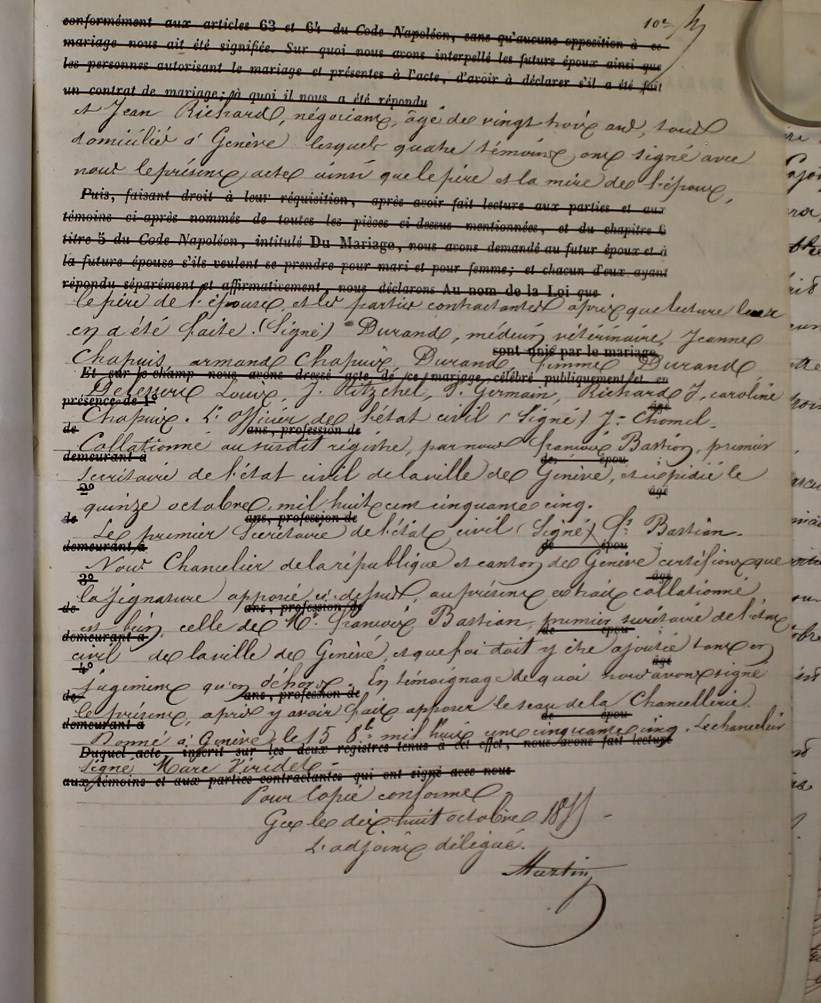 10e
conformément aux articles 63 et 64 du Code Napoléon, sans qu'aucune opposition à ce
mariage nous ait été signifiée. Sur quoi nous avons interpellé les futurs époux ainsi que
les personnes autorisant le mariage et présentes à l'acte, d'avoir à déclarer s'il a été fait
un contrat de mariage; à quoi il nous a été répondu
et Jean Richard, négociant, âgé de vingt trois ans, tous
domiciliés à Genève lesquels quatre témoins ont signé avec
nous le présent acte ainsi que le père et la mère de l'époux,
Puis, faisant droit à leur réquisition, après avoir fait lecture aux parties et aux
témoins ci-après nommés de toutes les pièces ci-dessus mentionnées, et du chapitre 6
titre 5 du Code Napoléon, intitulé Du Mariage, nous avons demandé au futur époux et à
la future épouse s'ils veulent se prendre pour mari et pour femme; et chacun d'eux ayant
répondu séparément et affirmativement, nous déclarons Au nom de la Loi que
le père de l'épouse et les parties contractantes après que lecture leur
en a été faite. (Signé) Durand, médecin vétérinaire, Jeanne
sont unis par le mariage
Chapuis, armand Chapuis, Durand femme Durand
Et sur le champ nous avons dressé acte de ce mariage, célébré publiquement et en
Delessert Louis, J. Hitzchel, F. Germain, Richard J, caroline
présence de 1º
âgé
Chapuis. L'officier de l'état civil (Signé) J. Chomel.
de ans, profession de
Collationné au susdit registre, par nous françois Bastian, premier
demeurant à de épou
Secrétaire de l'état civil de la ville de Genève, et expédié le
2º âgé
quinze octobre, mil huit cent cinquante cinq.
de ans, profession de
Le premier Secrétaire de l'état civil (Signé) Fs Bastian.
demeurant à de épou
Nous Chancelier de la république et canton de Genève certifions que
3º âgé
la signature apposée ci-dessus, au présent extrait collationné,
de ans, profession de
est bien celle de Mr. françois Bastian, premier secrétaire de l'état
demeurant à de épou
civil de la ville de Genève, et que foi doit y être ajoutée tant en
4º âgé
jugement qu'en dehors. En témoignage de quoi nous avons signé
de ans, profession de
le présent, après y avoir fait apposer le sceau de la Chancellerie.
demeurant à de épou
Donné à Genève, le 15 8bre mil huit cent cinquante cinq. Le chancelier
Duquel acte, inscrit sur les deux registres tenus à cet effet, nous avons fait lecture
Signé Marc Viridet.
aux témoins et aux parties contractantes qui ont signé avec nous
Pour Copie conforme
Gex le dix huit octobre 1855.
L'adjoint délégué.
Martin